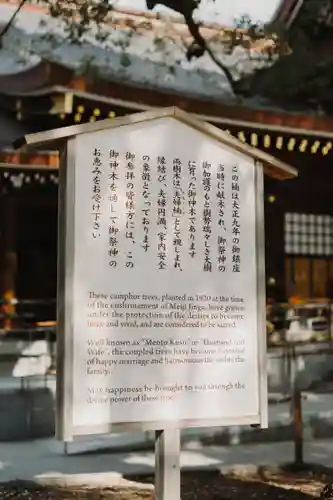 この楠は大正九年の御鎮座
当時に献木され、御祭神の
御加護のもと樹勢瑞々しき大樹
に育った御神木であります
両樹は「夫婦楠」として親しまれ、
縁結び、夫婦円満、家内安全
の象徴となっております
御参拝の皆様方には、この
御神木を通して御祭神の
お恵みをお
These camphor trees, planted in 1920 at the time
of the enshrinement of Meiji Jingu, have grown
under the protection of the deities to become
large and vivid, and are considered to be sacred.
Well known as "Meoto Kusu" or "Husband and
Wife", the coupled trees have become a symbol
of happy marriage and harmonious life within the
family.
May happiness be brought to you through the
divine power of these trees.